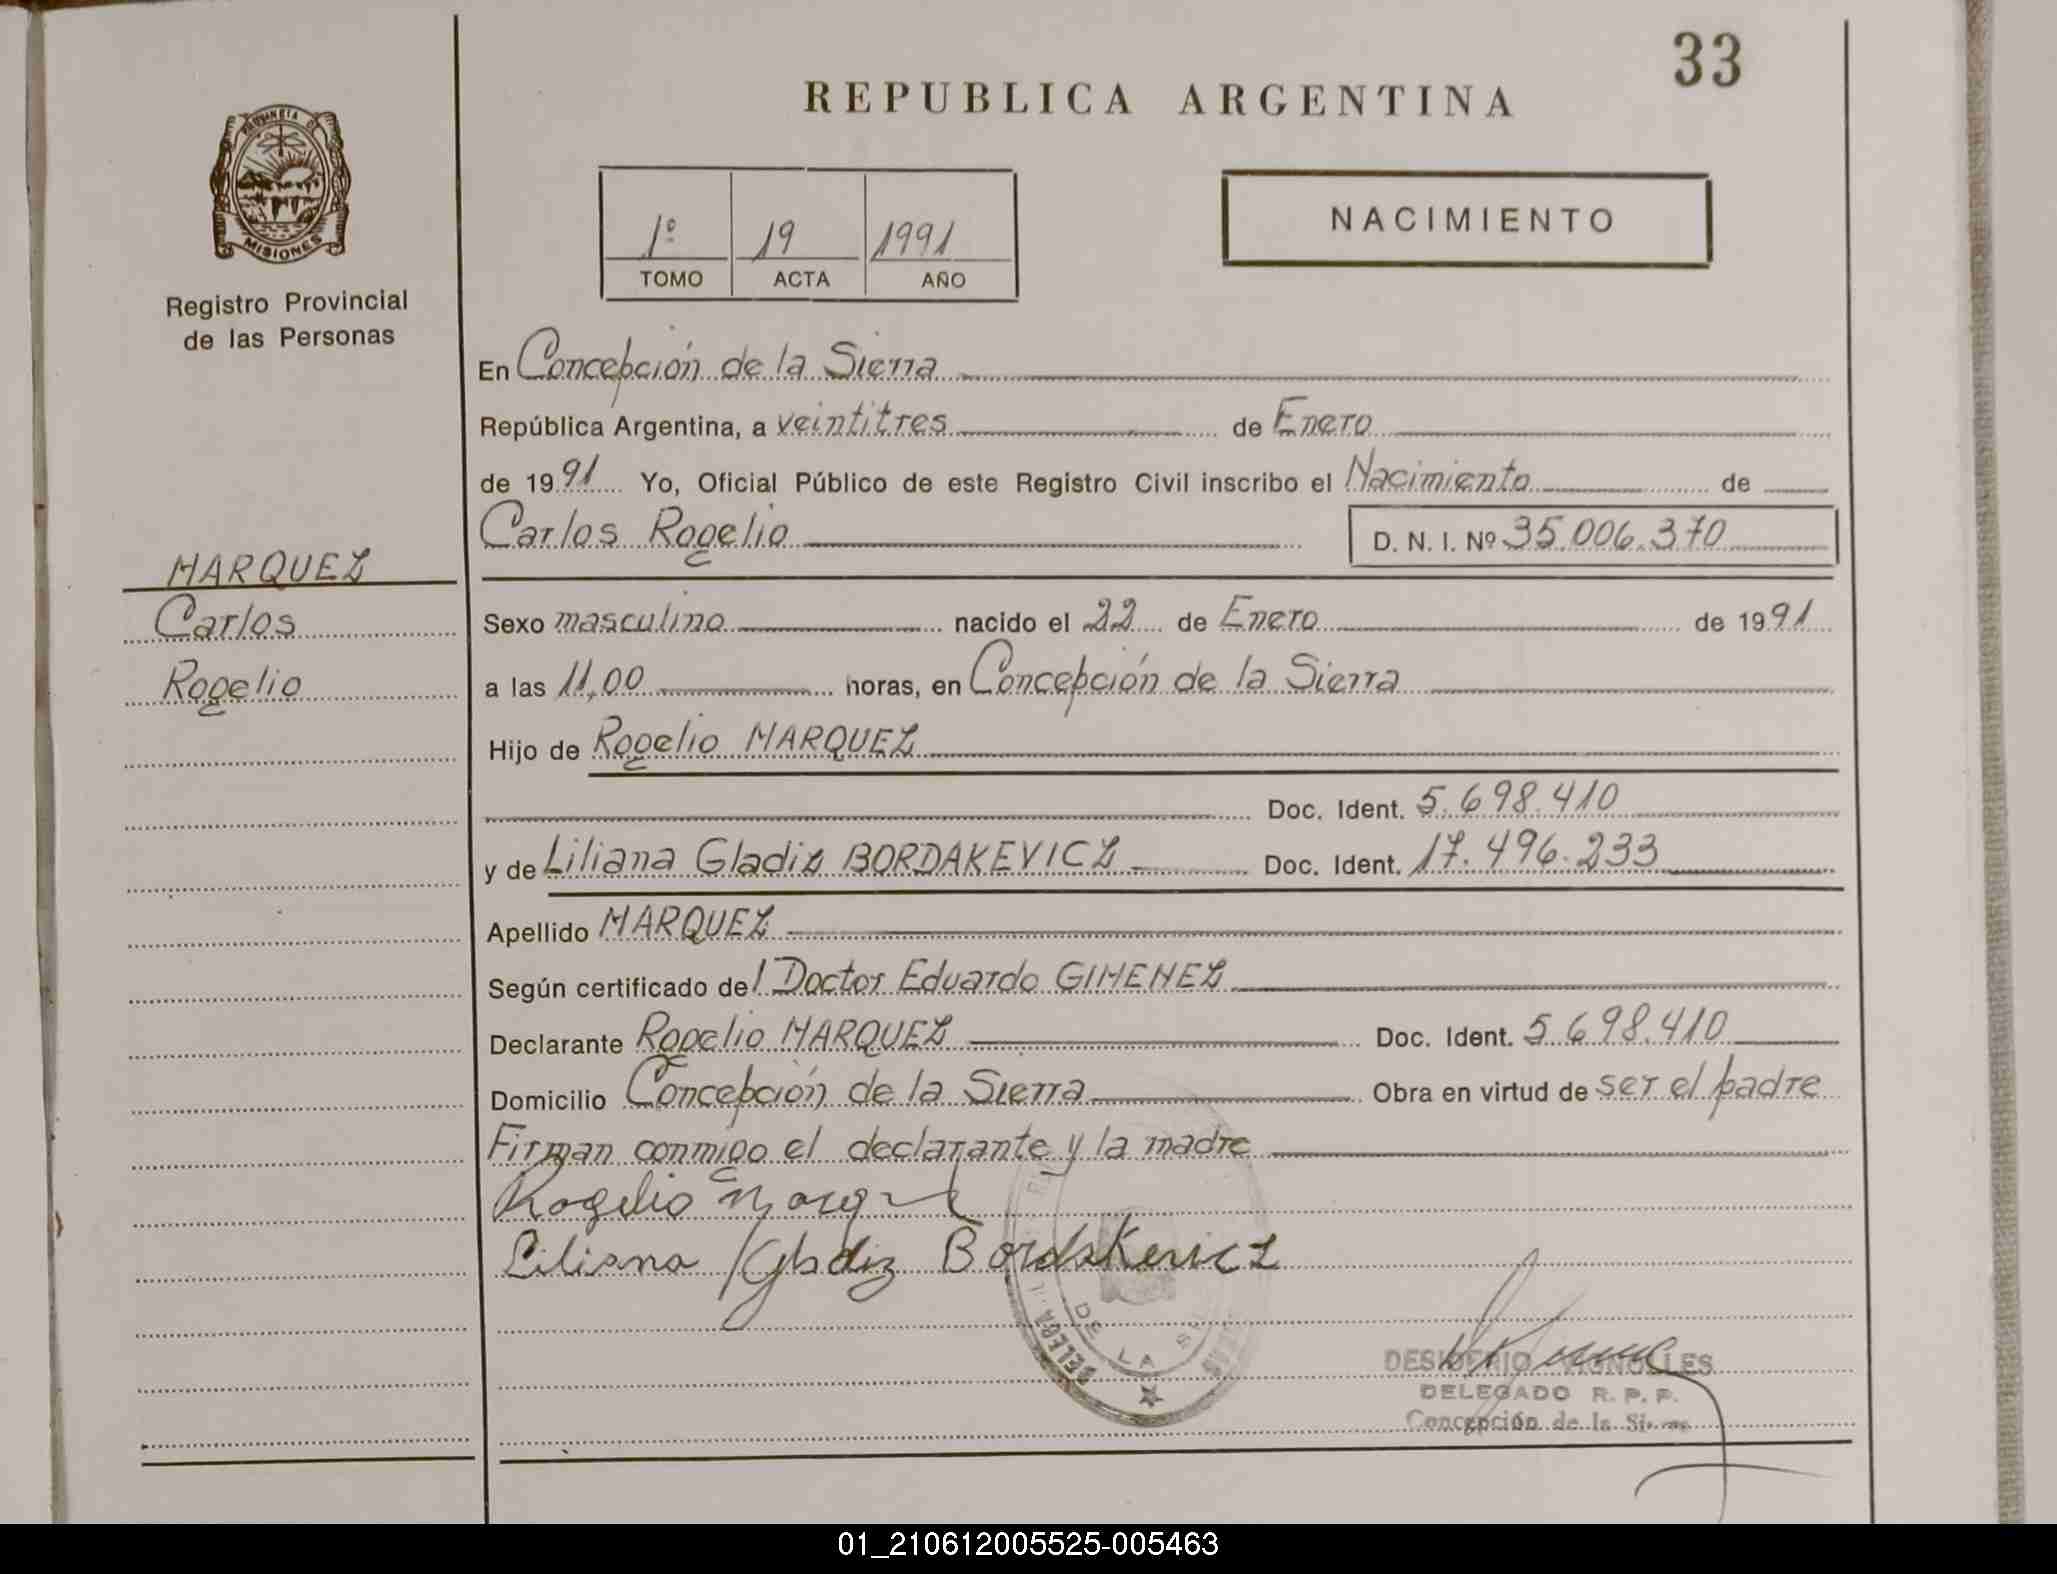 33
REPUBLICA ARGENTINA
PROVINCIA DE
MISIONES
Registro Provincial
de las Personas
1º 19 1991
TOMO ACTA AÑO
NACIMIENTO
En Concepción de la Sierra
República Argentina, a veintitres de Enero
de 1991 Yo, Oficial Público de este Registro Civil inscribo el Nacimiento de
Carlos Rogelio D. N. I. Nº 35.006.370
MARQUEZ
Carlos
Rogelio
Sexo masculino nacido el 22 de Enero de 1991
a las 11,00 horas, en Concepción de la Sierra
Hijo de Rogelio MARQUEZ
Doc. Ident. 5.698.410
y de Liliana Gladiz BORDAKEVICZ Doc. Ident. 17.496.233
Apellido MARQUEZ
Según certificado del Doctor Eduardo GIMENEZ
Declarante Rogelio MARQUEZ Doc. Ident. 5.698.410
Domicilio Concepción de la Sierra Obra en virtud de ser el padre
Firman conmigo el declarante y la madre
Rogelio Marquez
Liliana Gladiz Bordakevicz
DE LA
DESIDERIO VIGNOLLES
DELEGADO R. P. P.
Concepción de la Sierra
01_210612005525-005463